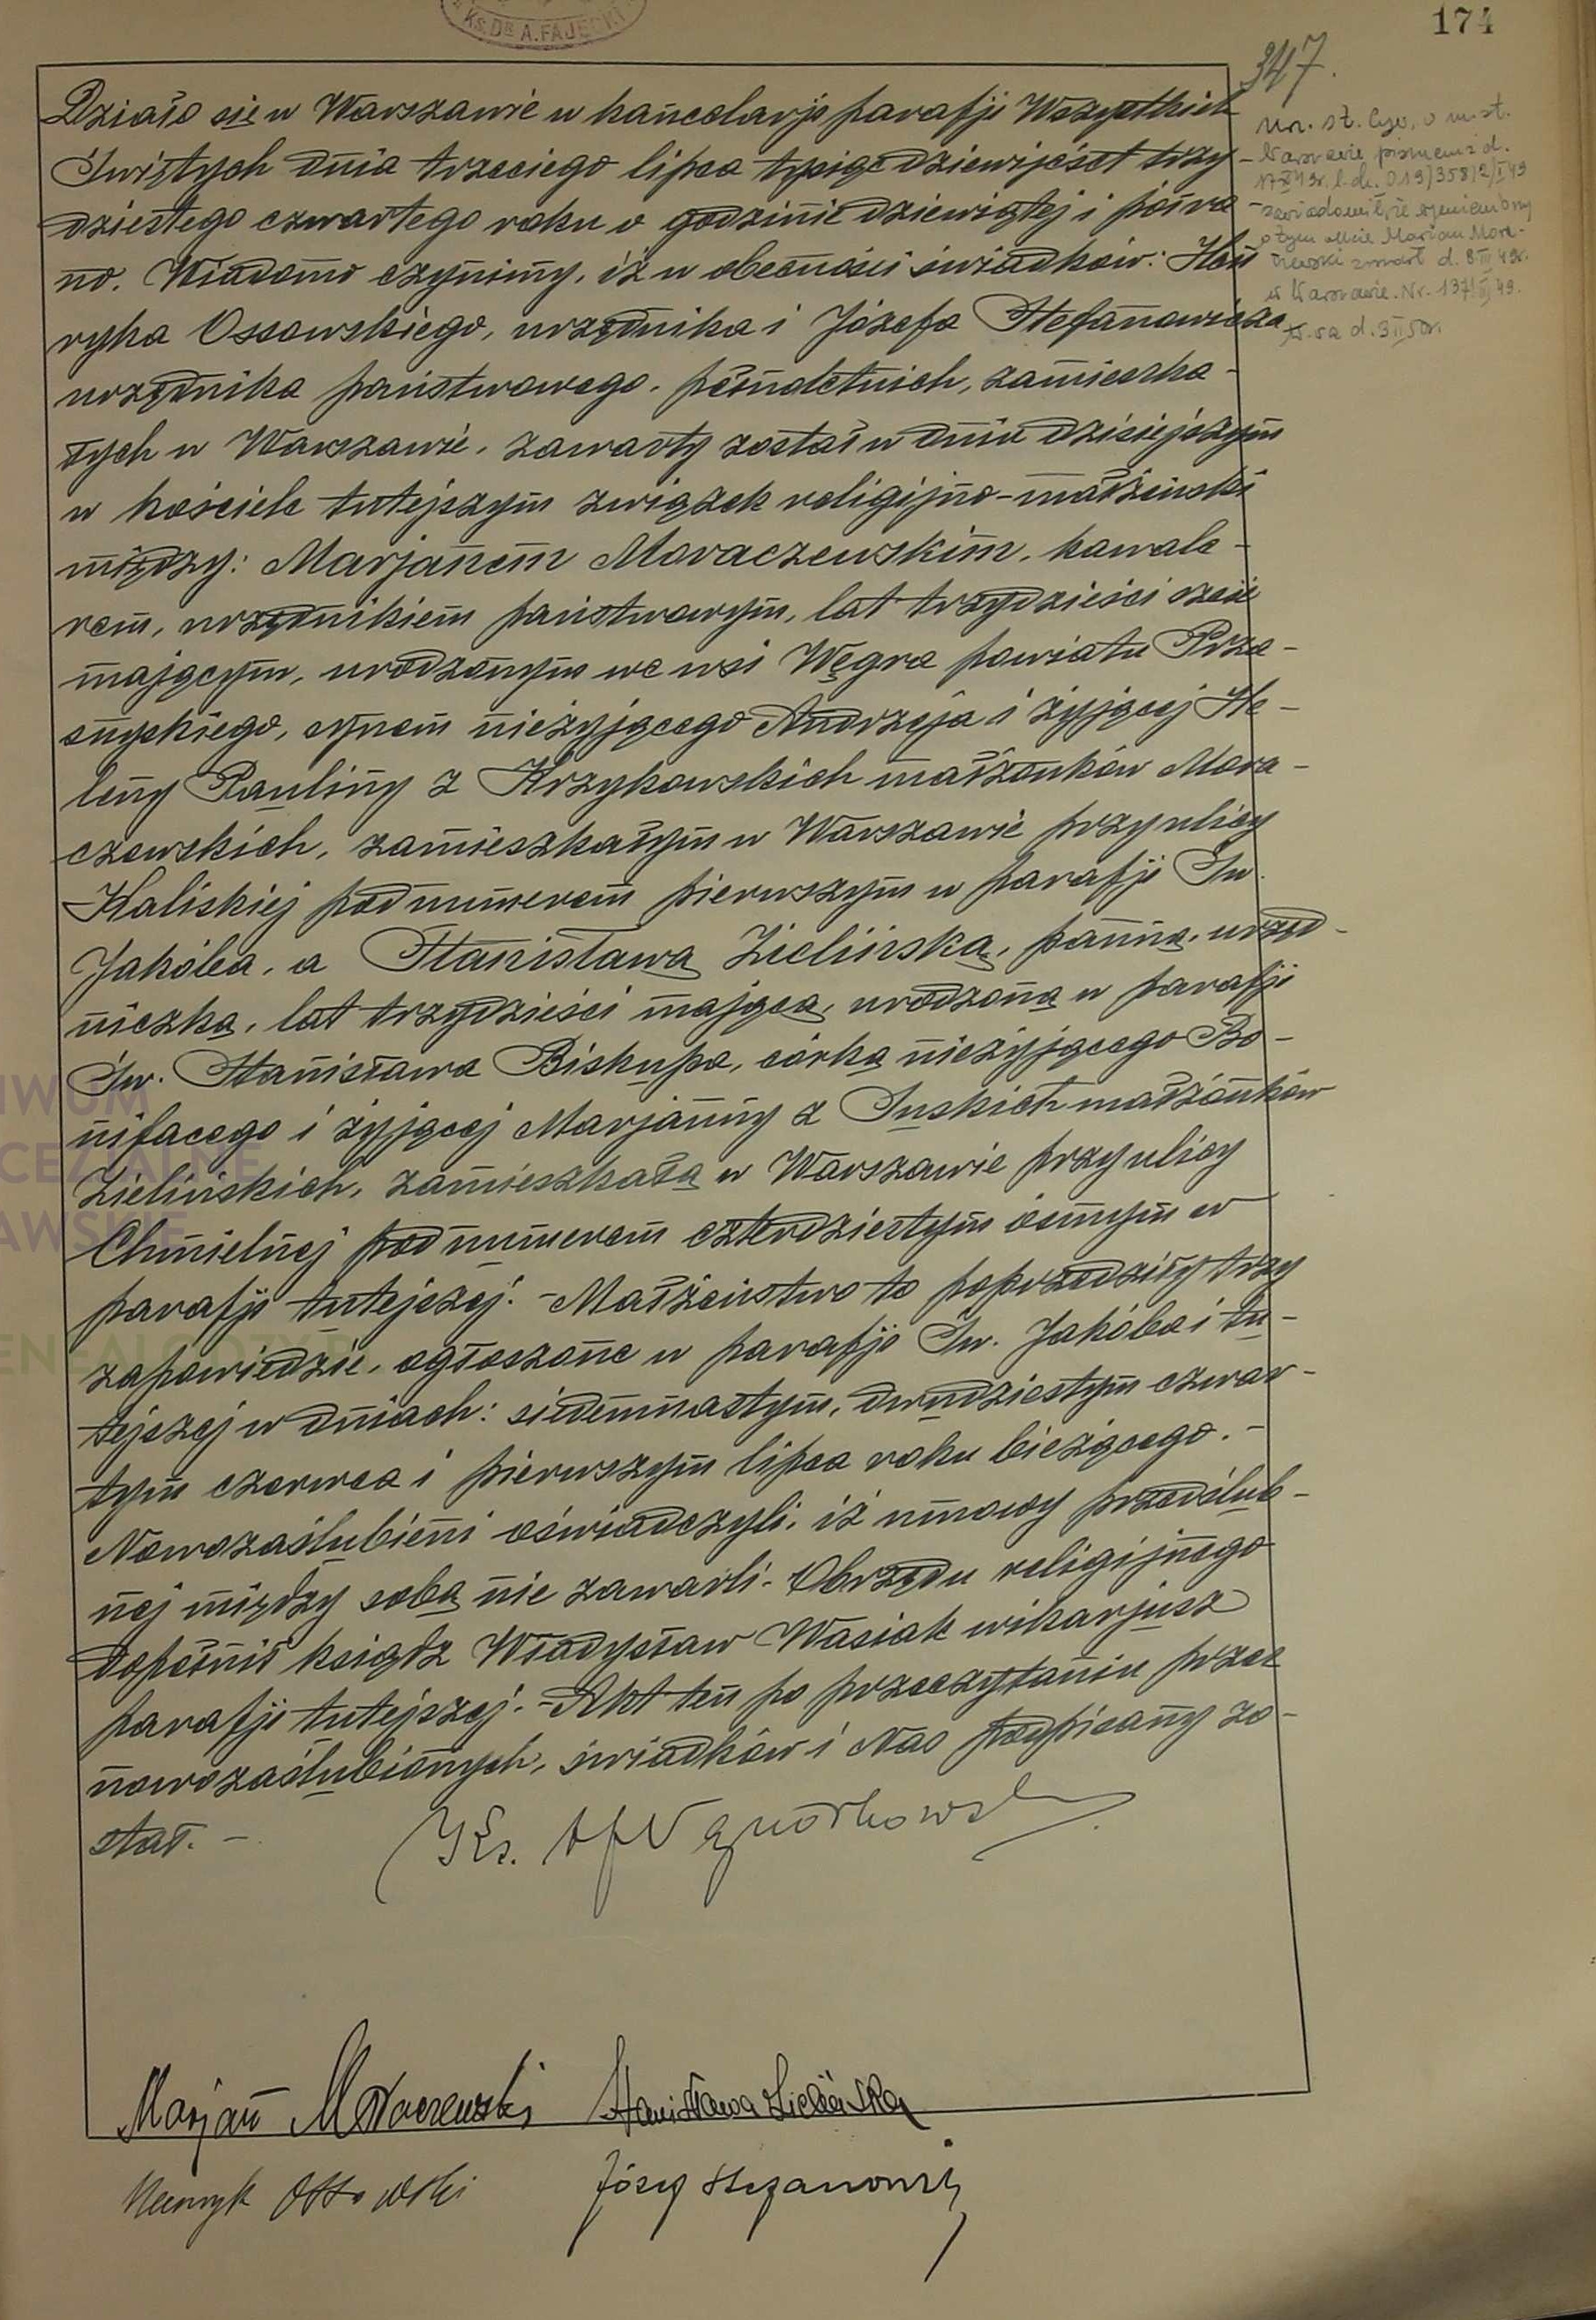 174
Ks. Dr A. FAJĘCKI
347.
Działo się w Warszawie w kancelarji parafji Wszystkich
Świętych dnia trzeciego lipca tysiąc dziewięćset trzy-
dziestego czwartego roku o godzinie dziewiątej i pół ra-
no. Wiadomo czynimy, iż w obecności świadków: Hen
ryka Ossowskiego, urzędnika i Józefa Stefanowicza
urzędnika państwowego, pełnoletnich, zamieszka-
łych w Warszawie, zawarty został w dniu dzisiejszym
w kościele tutejszym związek religijno-małżeński
między: Marjanem Moraczewskim, kawale-
rem, urzędnikiem państwowym, lat trzydzieści sześć
mającym, urodzonym we wsi Węgra powiatu Prza-
snyskiego, synem nieżyjącego Andrzeja i żyjącej He-
leny Pauliny z Krzykowskich małżonków Mora-
czewskich, zamieszkałym w Warszawie przy ulicy
Kaliskiej pod numerem pierwszym w parafji Św.
Jakóba, a Stanisławą Zielińską, panną, urzęd-
niczką, lat trzydzieści mającą, urodzoną w parafji
Św. Stanisława Biskupa, córką nieżyjącego Bo-
nifacego i żyjącej Marjanny z Suskich małżonków
Zielińskich, zamieszkałą w Warszawie przy ulicy
Chmielnej pod numerem czterdziestym ósmym w
parafji tutejszej. - Małżeństwo to poprzedziły trzy
zapowiedzie, ogłoszone w parafji Św. Jakóba i tu-
tejszej w dniach: siedemnastym, dwudziestym czwar-
tym czerwca i pierwszym lipca roku bieżącego. -
Nowozaślubieni oświadczyli, iż umowy przedślub-
nej między sobą nie zawarli. Obrzędu religijnego
dopełnił ksiądz Władysław Wasiak wikarjusz
parafji tutejszej. - Akt ten po przeczytaniu przez
nowozaślubionych, świadków i Nas podpisany zo-
stał. -
Marjan Moraczewski Stanisława Zielińska
Henryk Ossowski Józef Stefanowicz
Ur. st. cyw. o m. st.
Warszawie pismem z d.
zawiadomił, że wymieniony
o tym akcie Marian Mora-
czewski zmarł d. 8 49r.
w Warszawie. Nr. 137 49.